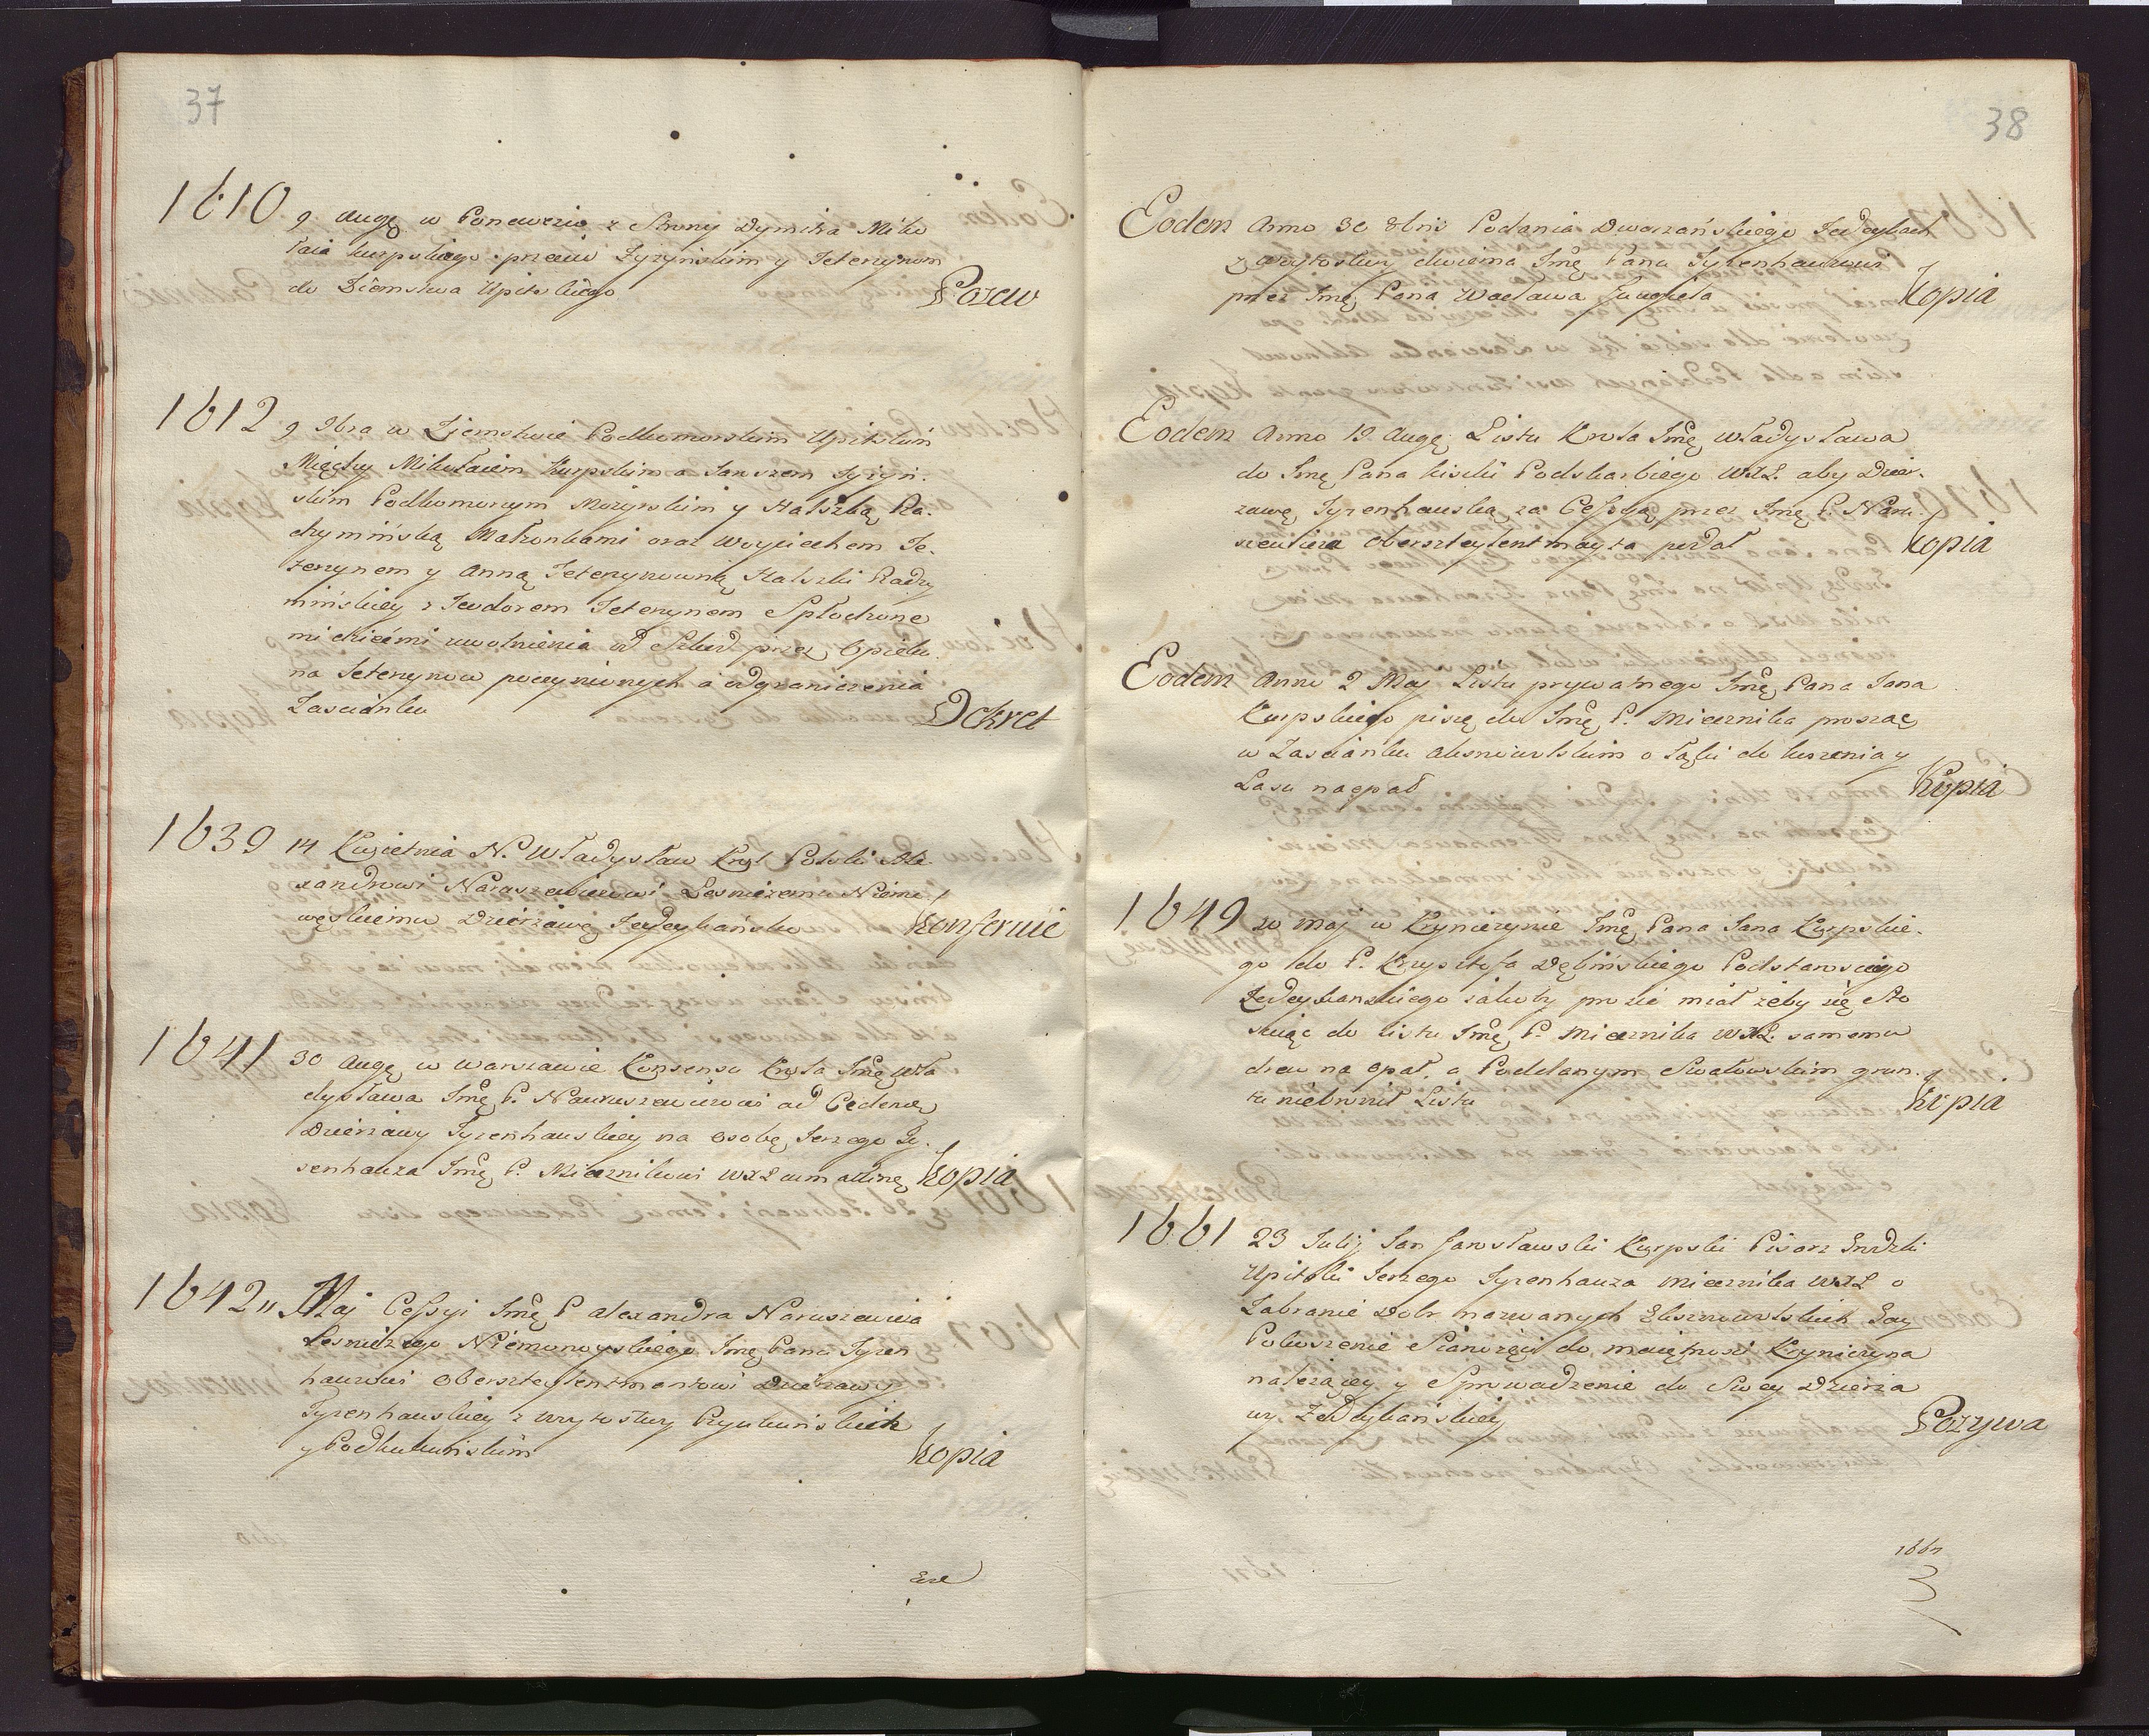 37
1610 9 Augę w Poneweziu z Strony Dymitra Miko
łaia Kurpskiego przeciw Zyzynskim y Teterynom
do Ziemstwa Upitskiego Pozew
1612 9 9bra w Ziemstwie Podkomorskim Upitskim
Między Mikołaiem Kurpskim a Januszem Żyżyń-
skim Podkomorym Mozyrskim y Halszką Ra-
dzymińską Małżonkami oraz Woyciechem Te-
terynem y Anną Teterynowną Halszki Radzy
mińskiey z Teodorem Teterynem Spłodzone
mi dziećmi uwolnienia od Szkod przez Opieku
na Teteryna poczynionych a odgraniczenia
Zascianku Dekret
1639 14 Kwietnia N. Władysław Krol Polski Ale-
xandrowi Naruszewiczowi Lesniczemu Niemo-
nwyskiemu Dzierżawę Zeydybańską Konferuie
1641 30 Augę w Warszawie Konsensu Krola Jmę Wła
dysława Jmę P. Naruszewiczowi ad Cedendę
Dzierżawy Tyzenhauskiey na osobę Jerzego Ty-
zenhauza Jmę P. Miecznikowi WXL umatlinę Kopia
1642 " Maj Cessyi Jmę P Alexandra Naruszewicza
Lesniczego Niemonwyskiego Jmę Panu Tyzen
hauzowi Obersztelentmentowi Dzierżawy
Tyzenhauskiey z Woytostwy Pzyukuńskiech
y Podkukuńskim Kopia
38
Eodem Anno 30 8bris Podania Dworzańskiego Zeydybach
z Woytostwy dwiema Jmę Panu Tyzenhauzowi
przez Jmę Pana Wacława Kopia
Eodem Anno 19 Augę Listu Krola Jmę Władysława
do Jmę Pana Kiszki Podskarbiego WXL aby Dzier-
zawę Tyzenhauską za Cessyą przez Jmę P. Naru-
szewicza Obersztelentmayta podał Kopia
Eodem Anno 2 Maj Listu prywatnego Jmę Pana Jana
Kurpskiego piszę do Jmę P. Miecznika prosząc
w Zascianku o łąki do koszenia y
Lasu na opał Kopia
1649 20 Maj w Kryniczynie Jmę Pana Jana Kurpskie-
go do P. Krzysztofa Dębińskiego Podstarosciego
Zeydybanskiego iakoby prosić miał żeby się sto
suiąc do listu Jmę P. Miecznika WXL samemu
drew na opał, a Poddanym Swatowskim grun-
tu niebronił Listu Kopia
1661 23 Julij Jan Jarosławski Kurpski Pisarz Grodzki
Upitski Jerzego Tyzenhauza Miecznika WXL o
Zabranie Dobr nazwanych
Pokoszenie Sianożęci do maiętnosci Kryniczyna
należącey y Sprowadzenie do Swey Dzierża
wy Zeydybańskiey Pozywa